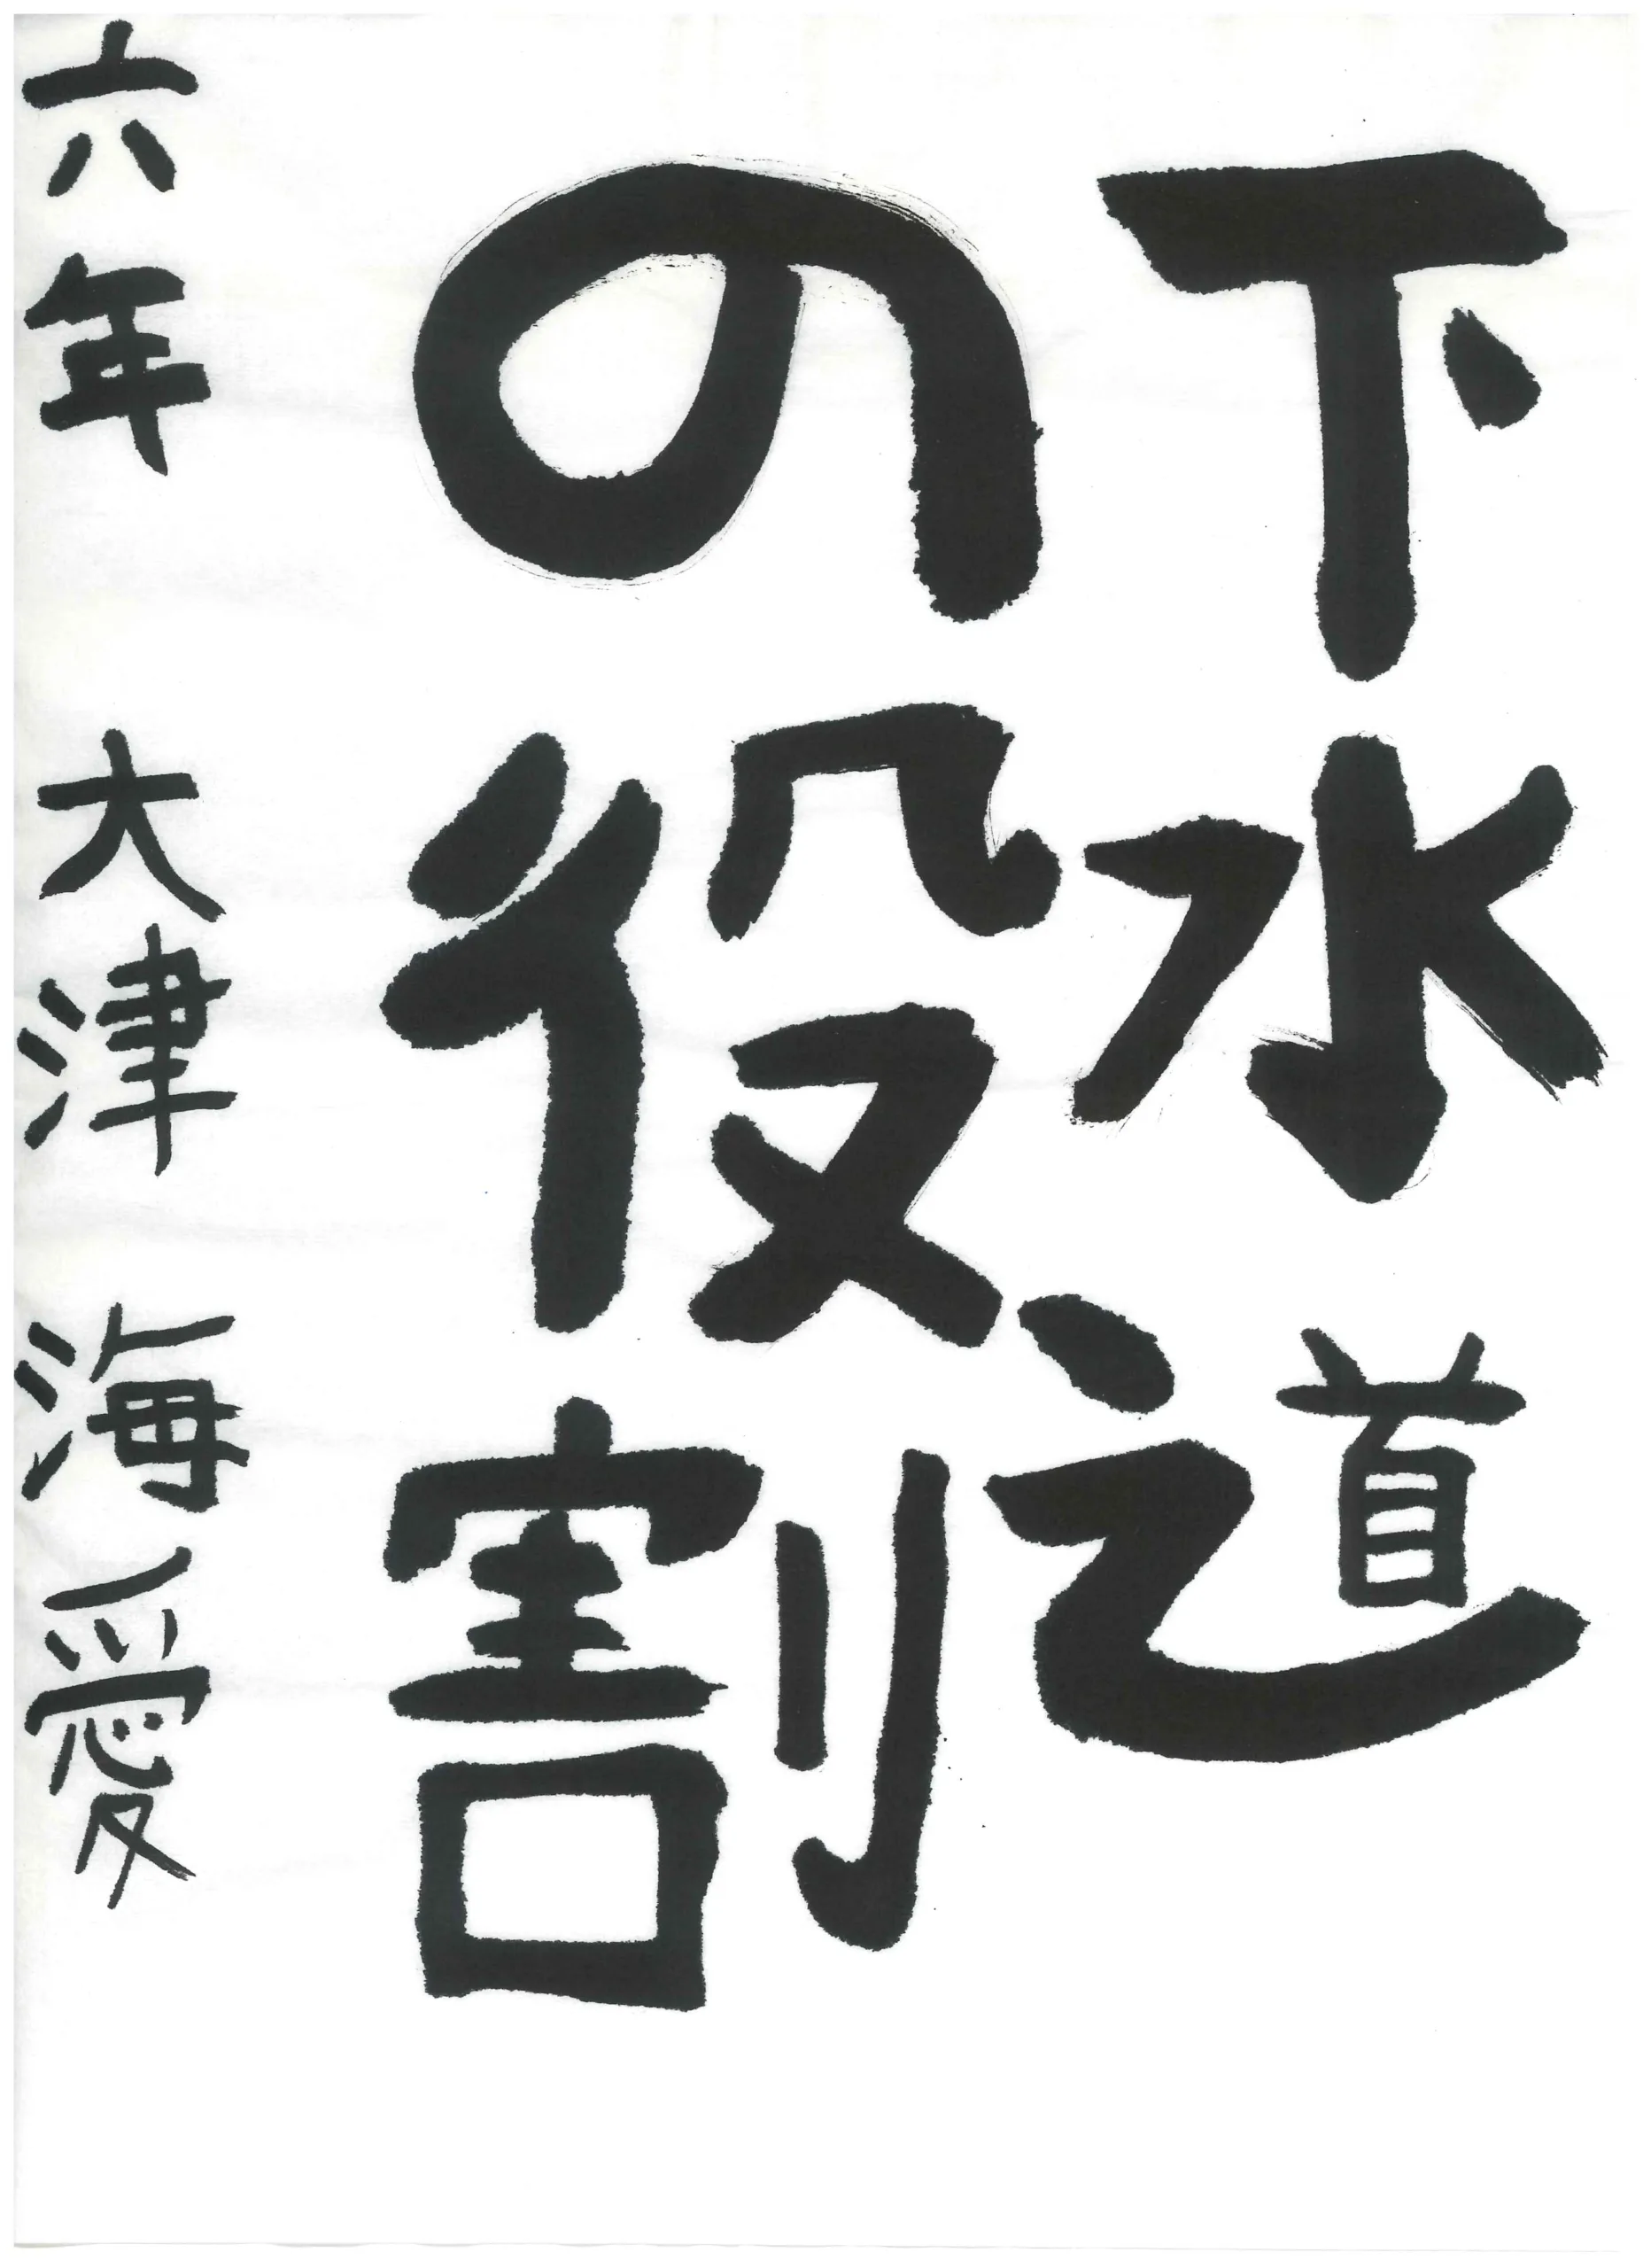 下水道
の役割
六年 大津 海愛